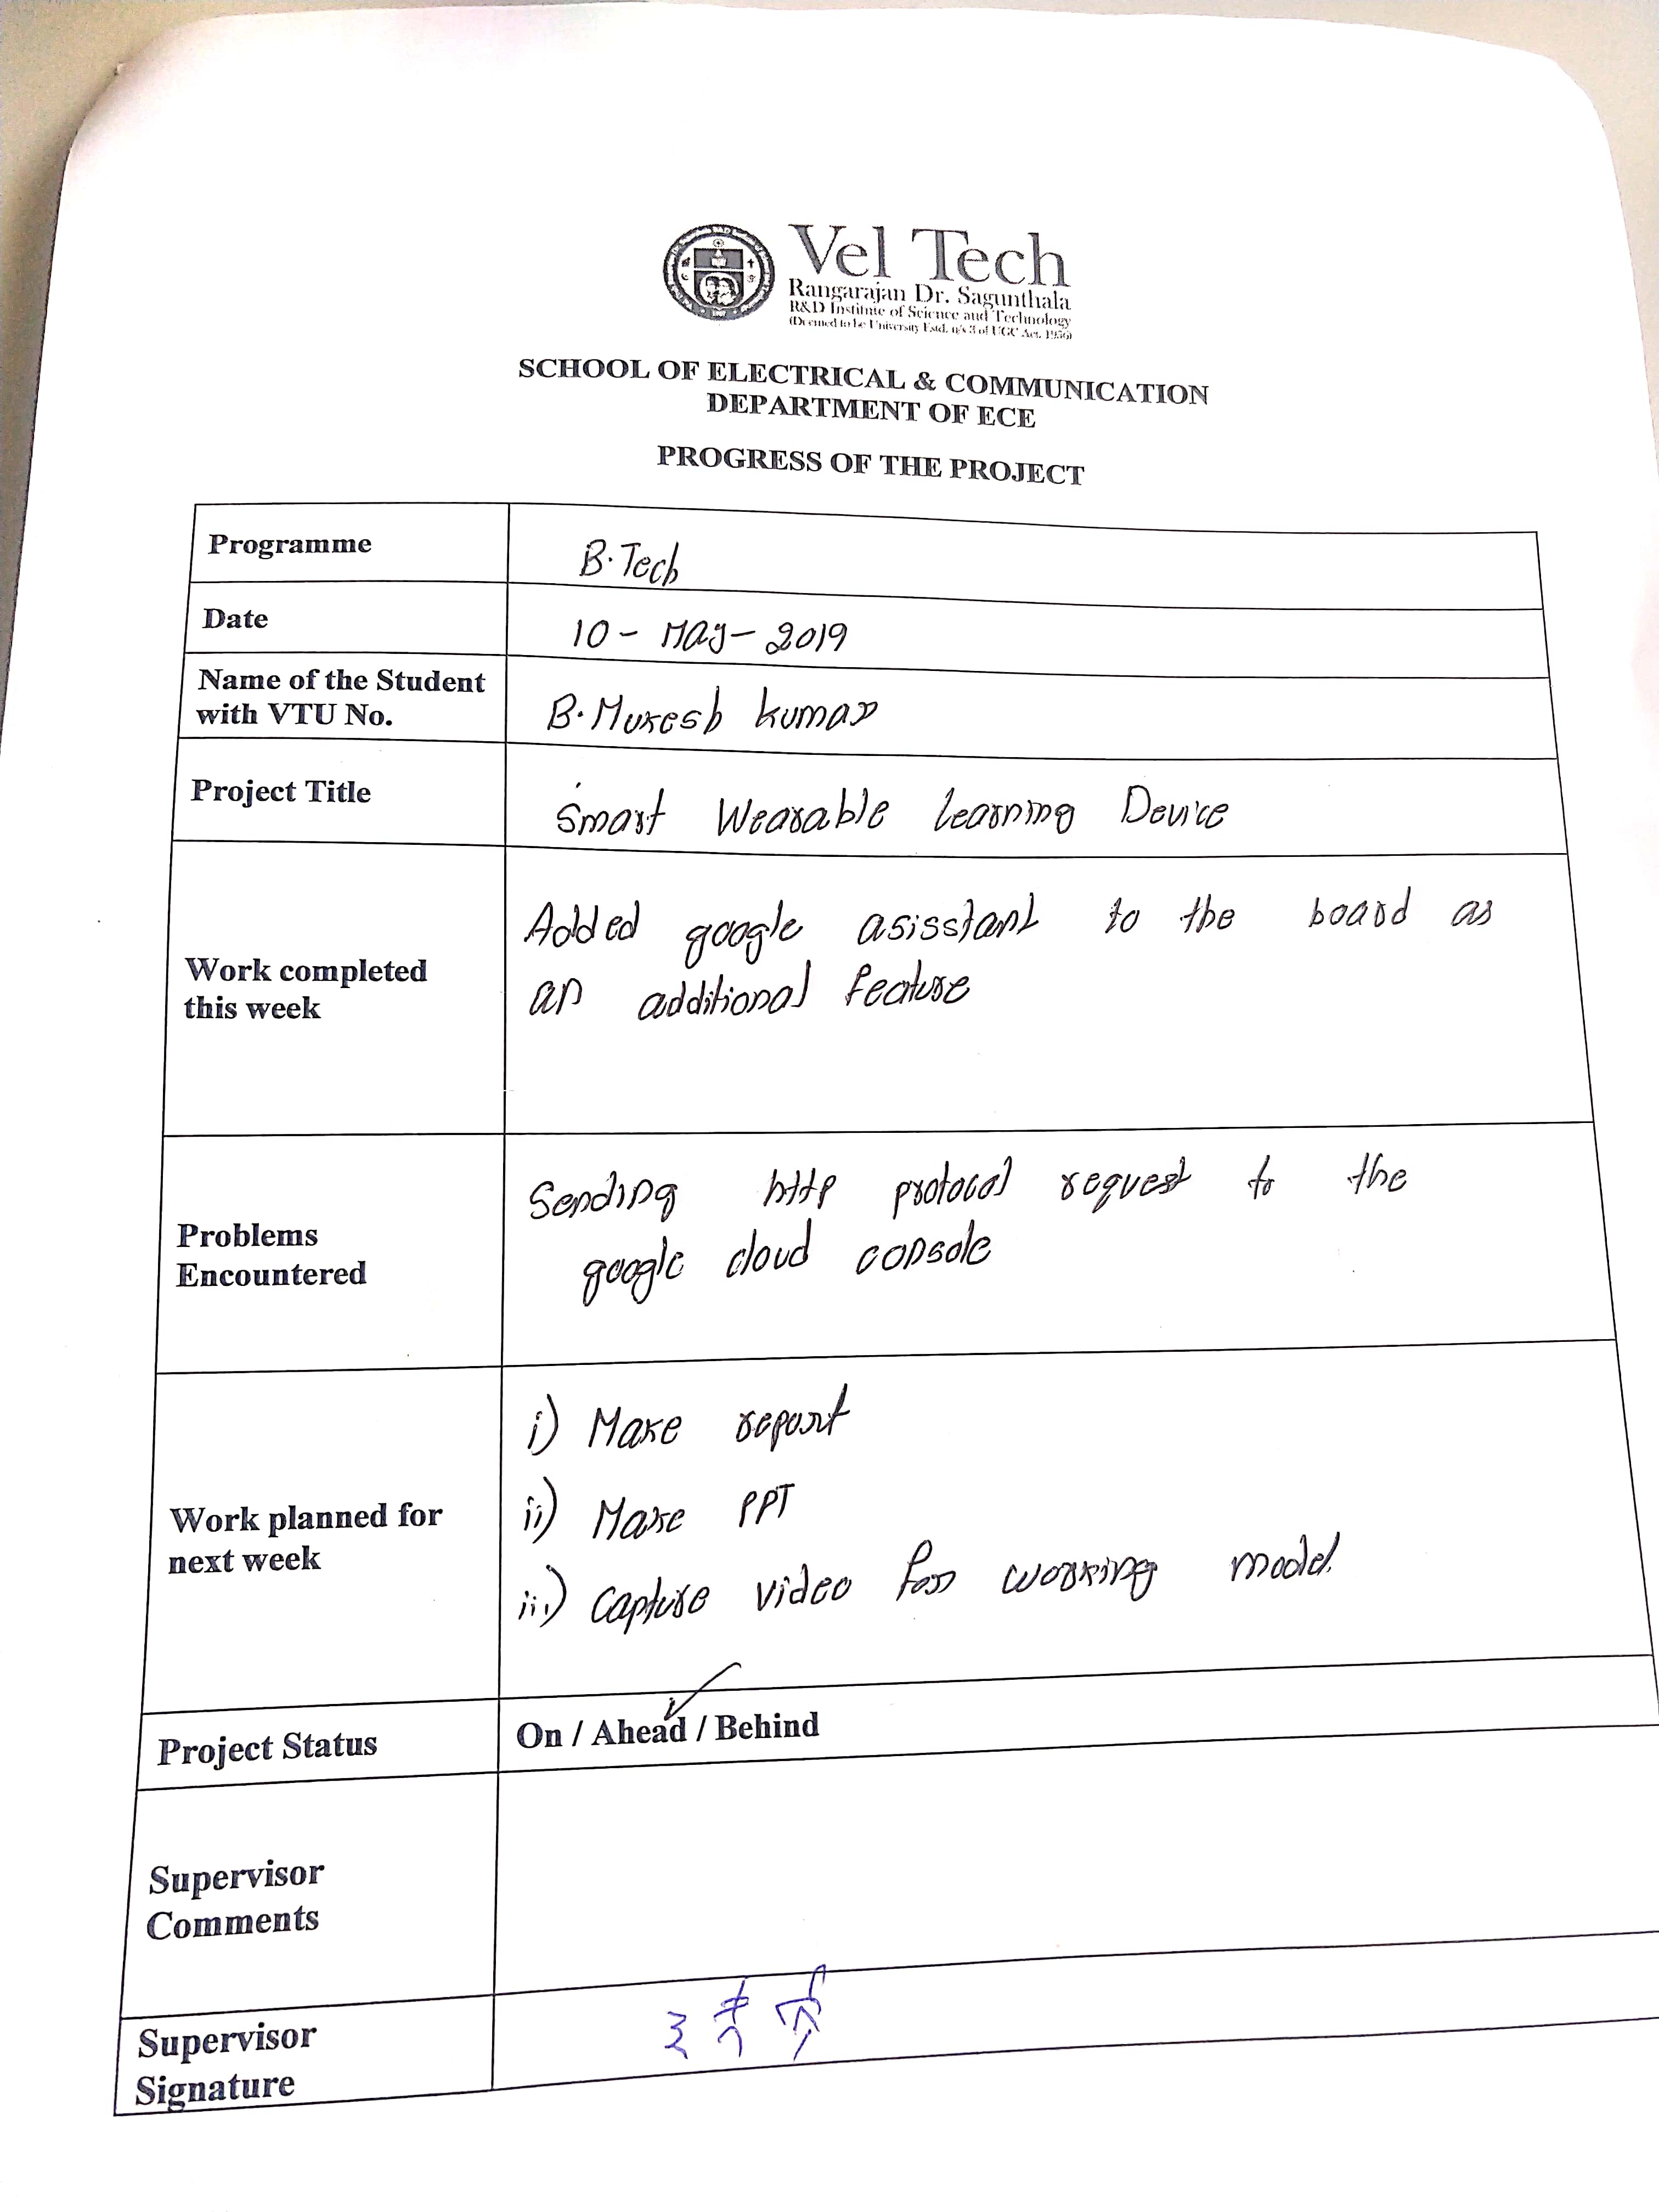 Vel Tech
Rangarajan Dr. Sagunthala
R&D Institute of Science and Technology
(Deemed to be University Estd. u/s 3 of UGC Act, 1956)
SCHOOL OF ELECTRICAL & COMMUNICATION
DEPARTMENT OF ECE
PROGRESS OF THE PROJECT
Programme
B.Tech
Date
10 - MAy - 2019
Name of the Student
with VTU No.
B.Mukesh kumar
Project Title
Smart Wearable Learning Device
Work completed
this week
Added google asisstant to the board as
an additional feature
Problems
Encountered
Sending http protocol request to the
google cloud console
Work planned for
next week
i) Make report
ii) Make PPT
iii) Capture video for working model.
Project Status
On / Ahead / Behind
Supervisor
Comments
Supervisor
Signature